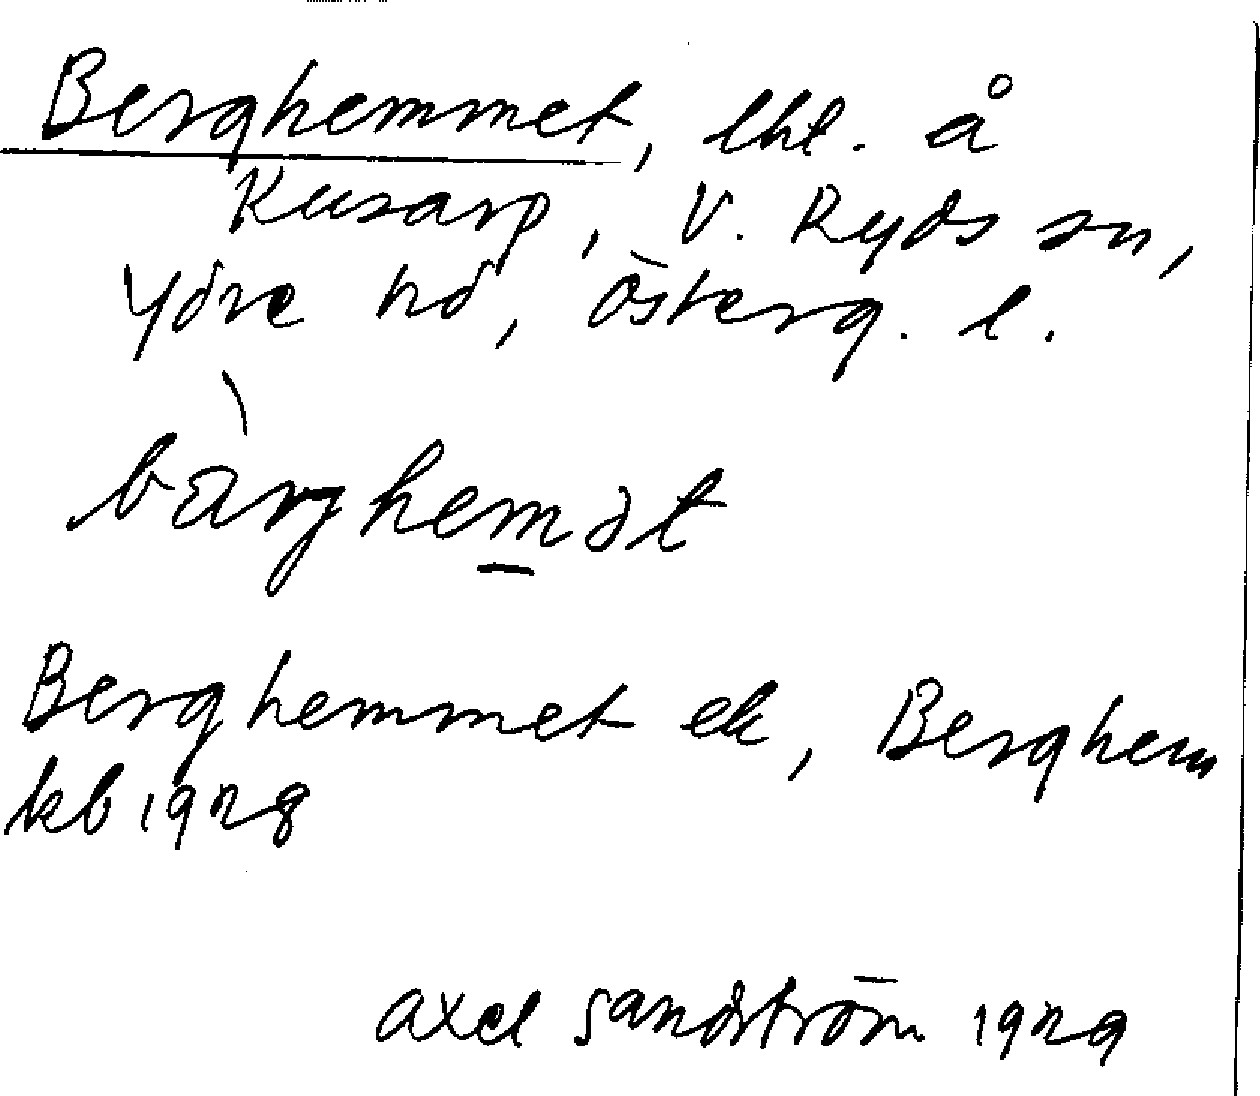 Berghemmet, lht. å
Kusarp, V. Ryds sn,
Ydre hd, Österg. l.
bàrghemət
Berghemmet ek, Berghem
kb 1928
Axel Sandström 1929